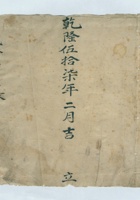 乾隆伍拾柒年二月吉 立